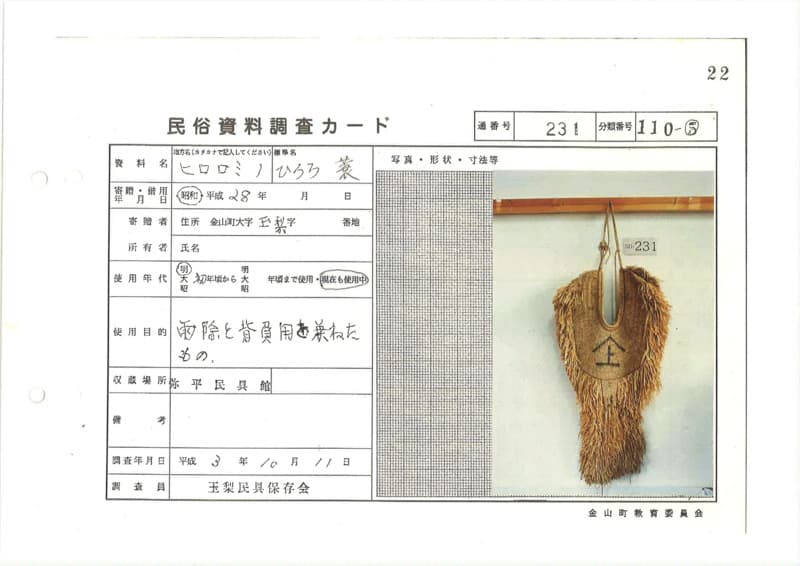 22
民俗資料調査カード
通番号 231 分類番号 110-⑤
資料名 地方名(カタカナで記入してください) 標準名
ヒロロミノ ひろろ蓑
写真・形状・寸法等
寄贈・借用年月日 昭和・平成 28年 月 日
寄贈者 住所 金山町大字 玉梨 字 番地
所有者 氏名
使用年代 明大昭 初年頃から 明大昭 年頃まで使用・現在も使用中
使用目的 雨除と背負用を兼ねた
もの.
収蔵場所 弥平民具館
備考
調査年月日 平成 3年 10月 11日
調査員 玉梨民具保存会
NO. 231
上
金山町教育委員会